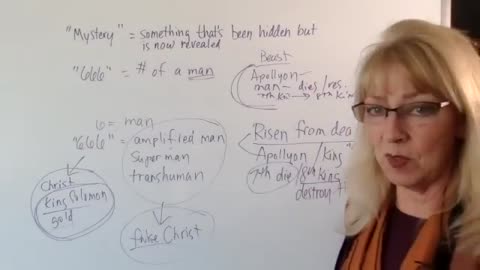 "Mystery" = something that's been hidden but
is now revealed
"666" = # of a man
Beast
Apollyon
man - dies / res.
7th Kin → 8th Kin
6 = man
"666" = amplified man
Superman
transhuman
Risen from dea
Apollyon / King
7th die / 8th King
destroy
Christ
King Solomon
gold
false Christ